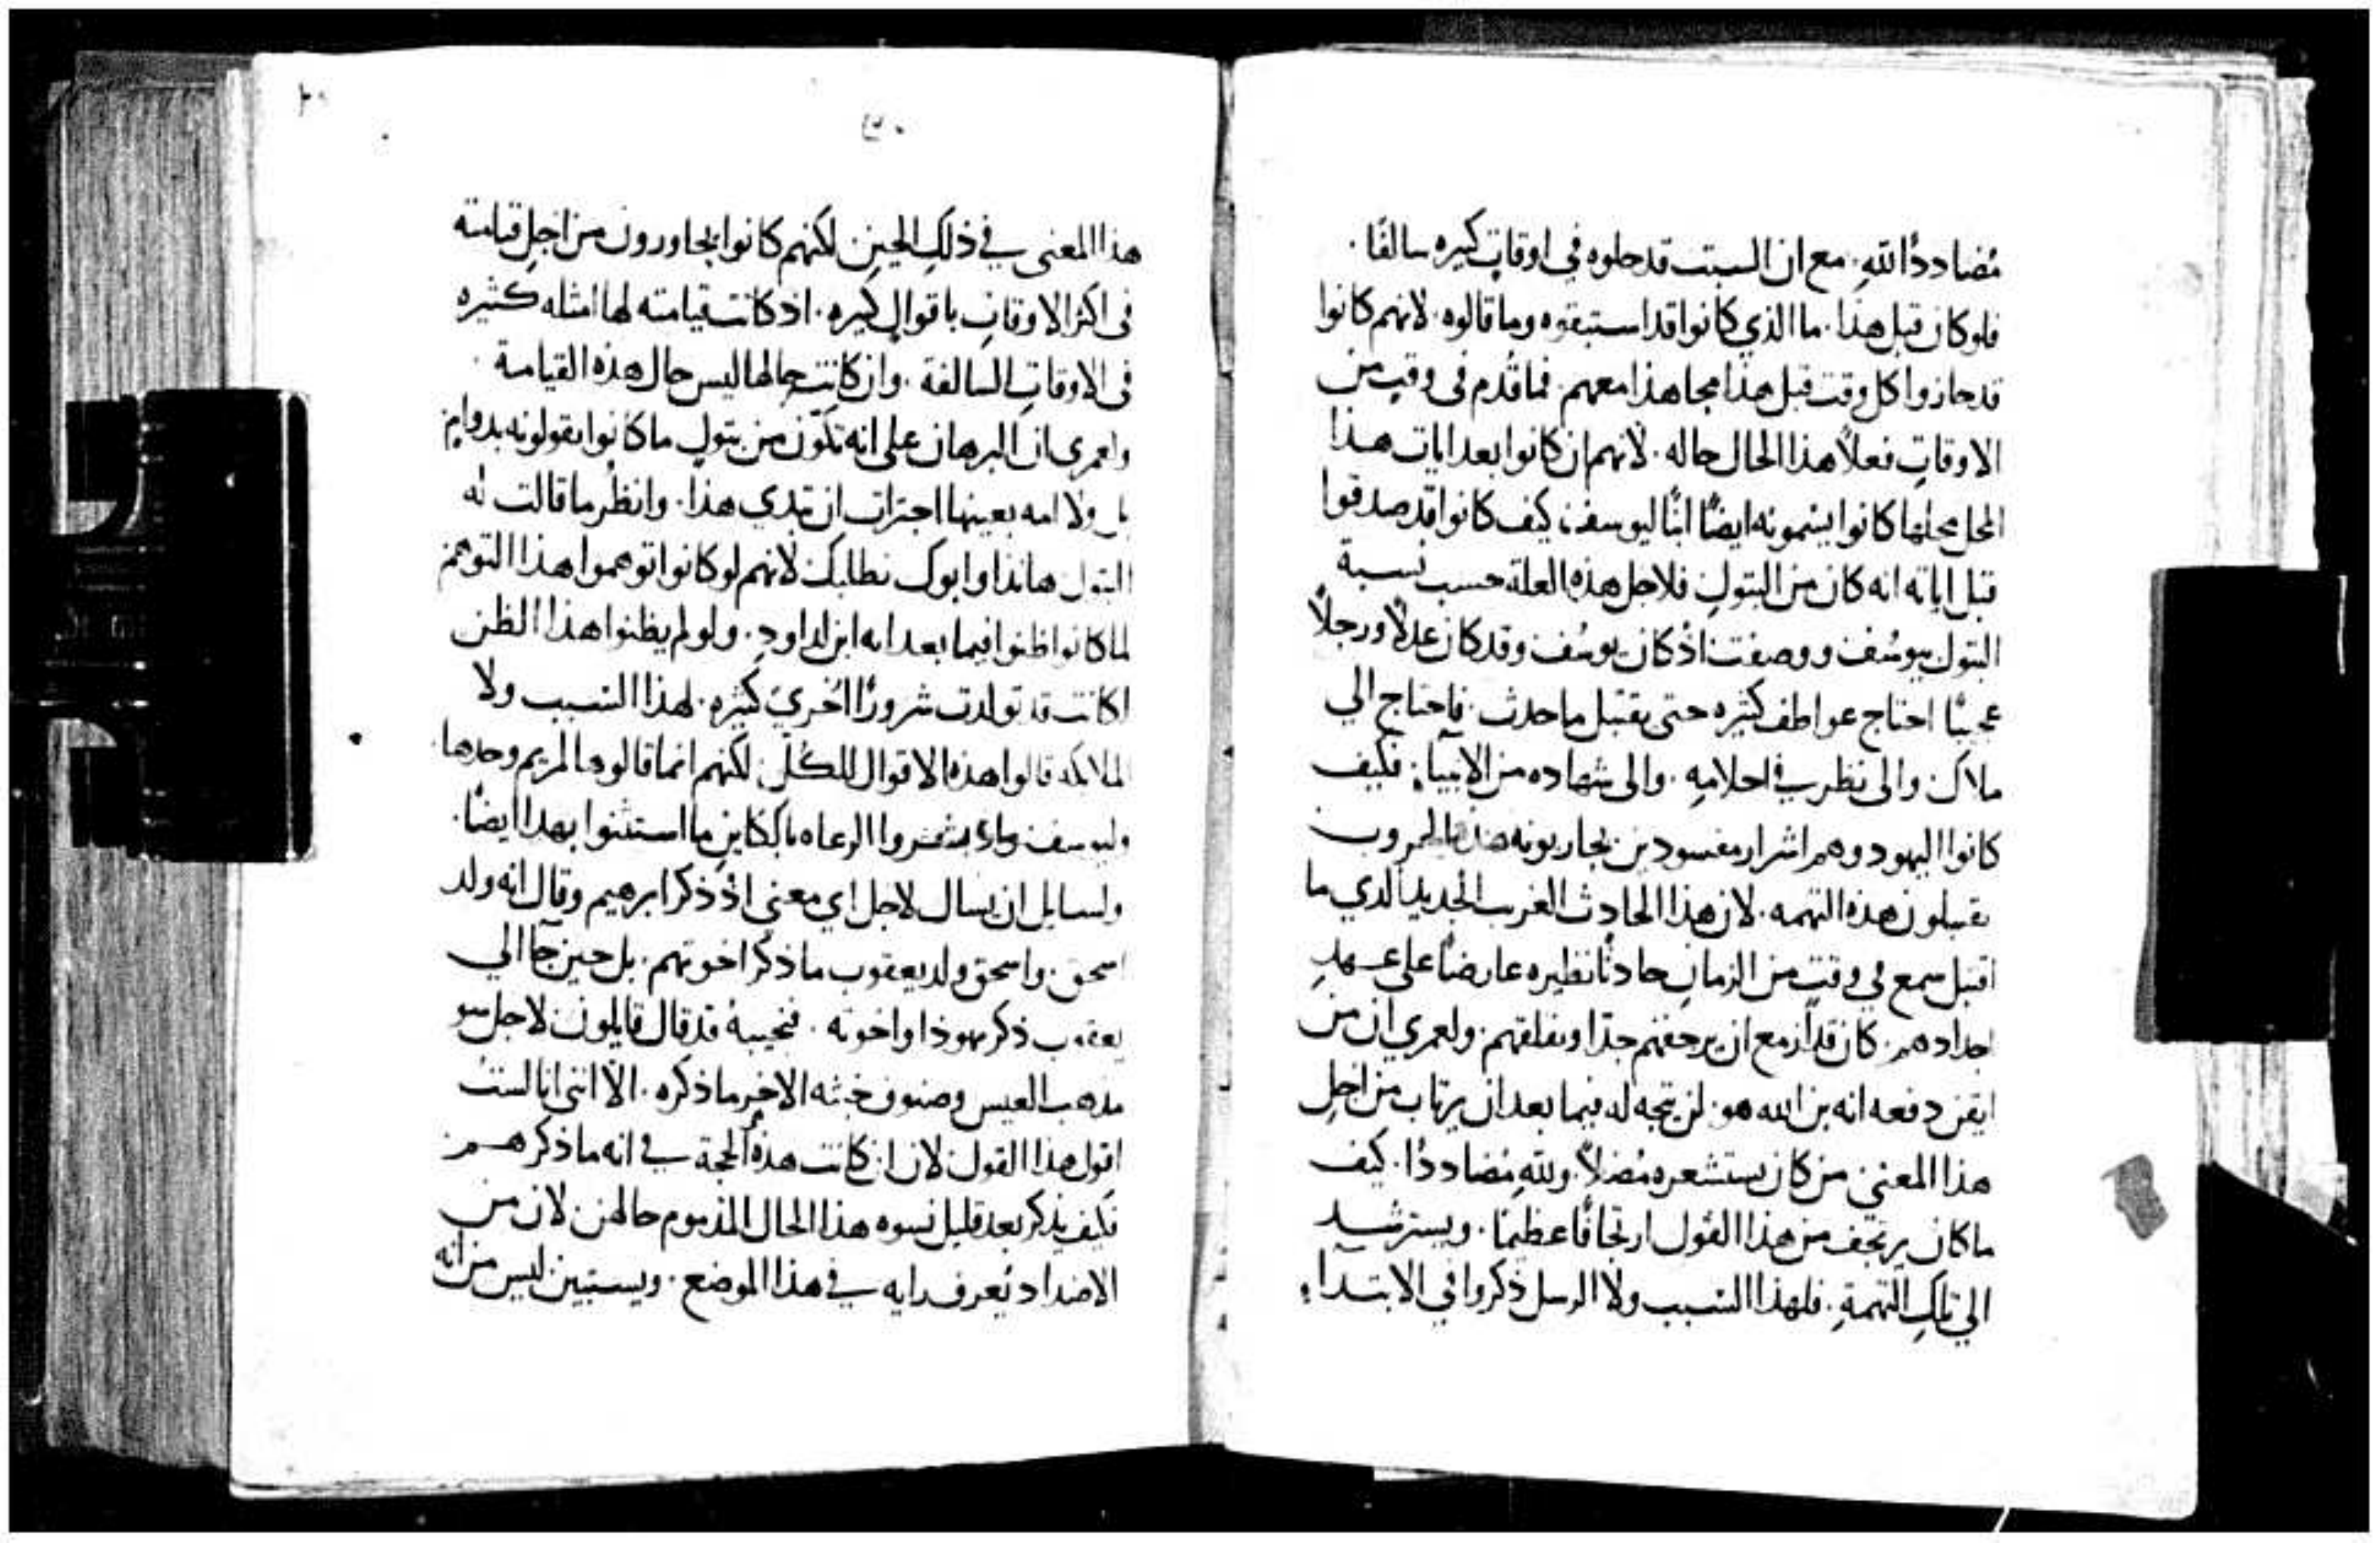 مُضاددًا لله. مع ان السبت قد حلوه في اوقاتٍ كثيره سالفًا.
فلو كان قبل هذا. ما الذي كانوا قد استبقوه وما قالوه. لانهم كانوا
قد حازوا كل وقت قبل هذا مجاهذا معهم. فما قُدم في وقتٍ من
الاوقاتِ فعلاً هذا الحال حاله. لانهم ان كانوا بعد ايات هذا
المحل محلها كانوا يسمونه ايضًا ابنًا ليوسف. كيف كانوا قد صدقوا
قبل اياته انه كان من البتولِ فلاجل هذه العلة حسب نسبة
البتول بيوسُف ووصفت اذ كان يوسُف وقد كان عدلاً ورجلاً
عجيبًا احتاج عواطف كثيره حتى يقتبل ما حدث. فاحتاج الي
ملاك والى نظر في احلامِهِ. والى شهاده من الانبياء. فكيف
كانوا اليهود وهم اشرار مفسودين يحاربونه
يقبلون هذه التهمه. لان هذا الحادِث الغريب الجديد الذي ما
اقتبل سمع في وقتٍ من الزمانِ حادثًا نظيره عارضًا على عهدِ
اجدادهم. كان قد ازمع ان يرجفهم جدًا ويقلقهم. ولعمري ان من
ايقن دفعه انه بن الله هو. لن يتجه له فيما بعد ان يرتاب من اجلِ
هذا المعنى من كان يستشعره مُضلاً. ولله مُضاددًا. كيف
ما كان يرتجف من هذا القول ارتجافًا عظيمًا. ويسترشد
الى تلكِ التهمةِ. فلهذا السبب ولا الرسل ذكروا في الابتداء.
هذا المعنى في ذلكِ الحينِ لكنهم كانوا يحاورون من اجلِ قيامته
في اكثر الاوقاتِ باقوالٍ كثيره. اذ كانت قيامته لها امثله كثيره
في الاوقاتِ السالفة. وان كانت حالها ليس حال هذه القيامة.
ولعمري ان البرهان على انه تكوّن من بتولٍ ما كانوا يقولونه بدوامٍ
بل ولا امه بعينها اجترات ان تبدي هذا. وانظُر ما قالت له
البتول هانذا وابوك نطلبك لانهم لو كانوا توهموا هذا التوهم
لما كانوا ظنوا فيما بعد انه ابن لداودِ. ولو لم يظنوا هذا الظن
لكانت قد تولدت شرورًا اُخريَ كثيره. لهذا السبب ولا
الملايكه قالوا هذه الاقوال للكُلّ. لكنهم انما قالوها لمريم وحدها
وليوسف ولما بشروا الرعاه بالكاينِ ما استثنوا بهذا ايضًا.
ولسايل ان يسال لاجل اي معنى اذ ذكر ابرهيم وقال انه ولد
اسحق. واسحق ولد يعقوب ما ذكر اخوتهم. بل حين جآ الي
يعقوب ذكر يهوذا واخوته. فنجيبهُ قد قال قايلون لاجل سو
مذهب العيس وصنوف خبثه الاخر ما ذكره. الّا انني انا لستُ
اقول هذا القول لان ان كانت هذه الحجة في انه ما ذكرهم
فكيف يذكر بعد قليل نسوه هذا الحال المذموم حالهن. لان من
الاضداد يُعرف رايه في هذا الموضع. ويستبين ليس من انه